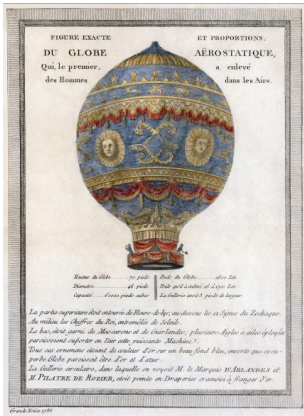 FIGURE EXACTE ET PROPORTIONS,
DU GLOBE AËROSTATIQUE,
Qui, le premier, a enlevé
des Hommes dans les Airs.
Hauteur du Globe 70. pieds
Poids du Globe 1600 Liv.
Diametre 46. pieds
Poids qu'il a enlevé
Capacité 60000 pieds cubes
La Gallerie avoit 3. pieds de largeur
La partie superieure étoit entourée de Fleurs-de-lys; au-dessous les 12 Signes du Zodiaque.
Au milieu les Chiffres du Roi, entremêlés de Soleils.
Le bas étoit garni de Mascarons et de Guirlandes; plusieurs Aigles à ailes éployées
paroissoient suporter en l'air cette puissante Machine.
Tous ces ornemens étoient de couleur d'or sur un beau fond bleu, ensorte que ce su-
perbe Globe paroissoit être d'or et d'azur.
La Gallerie circulaire, dans laquelle on voyoit M. le Marquis D'ARLANDES et
M. PILATRE DE ROZIER, étoit peinte en Draperies cramoisi à franges d'or.